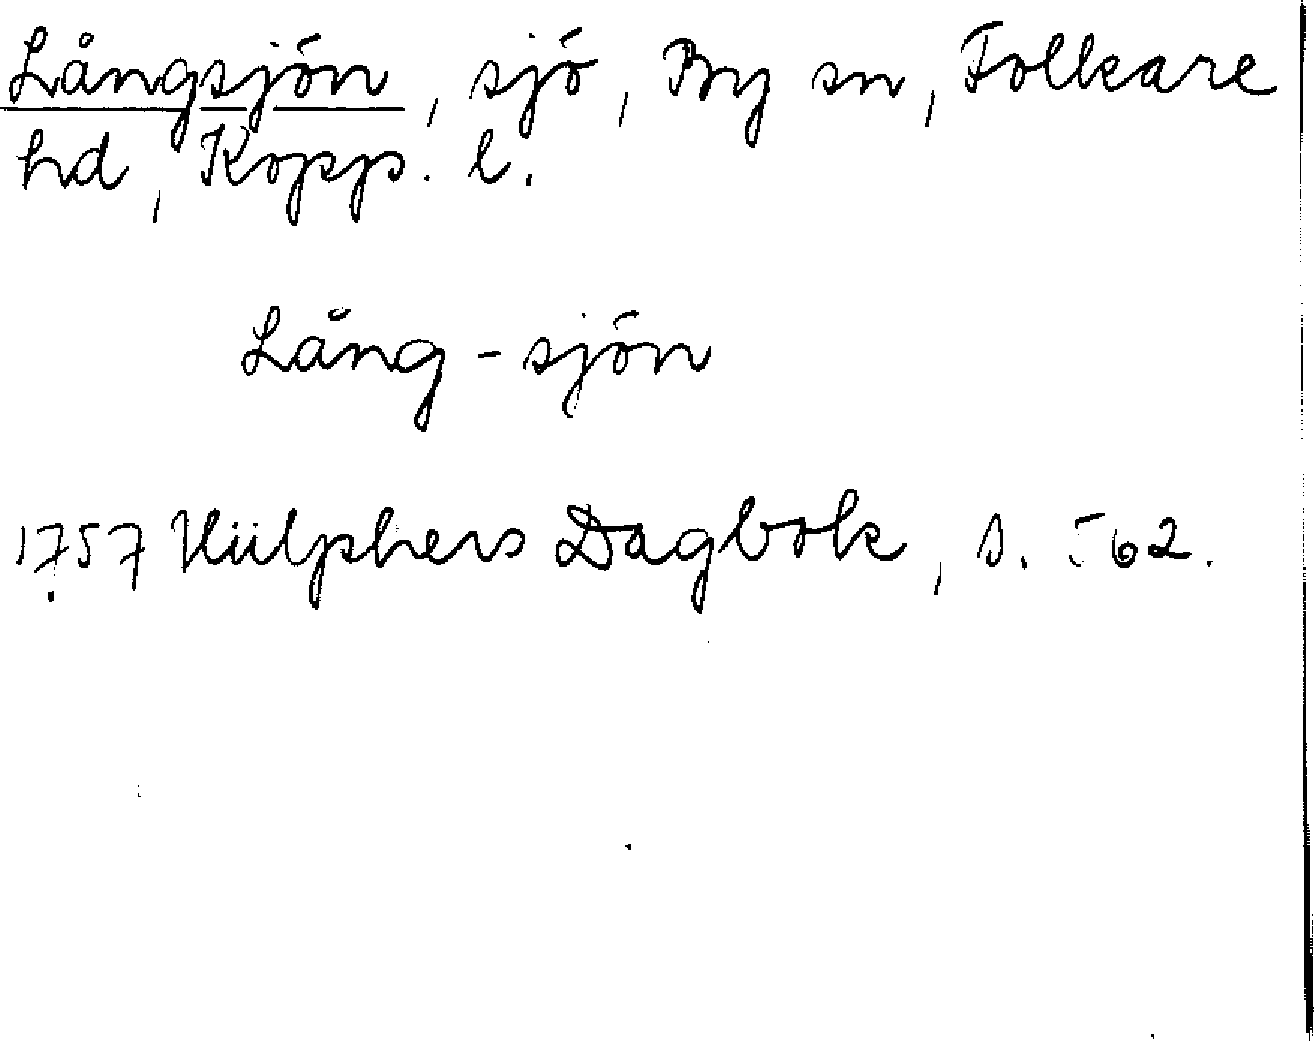 Långsjön, sjö, By sn, Folkare
hd, Kopp. l.
Lång-sjön
1757 Hülphers Dagbok, s. 562.